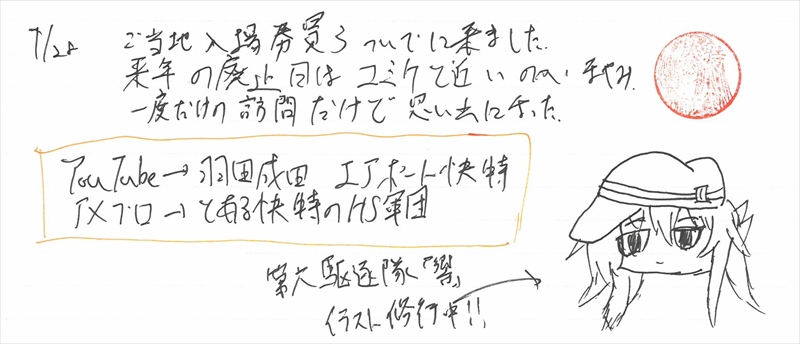 7/28 ご当地入場券買うついでに来ました.
来年の廃止日はコミケて近いのがい
一度だけの訪問だけで思い出になった.
YouTube→羽田成田 エアポート快特
アメブロ→とある快特のHS軍団
第六駆逐隊「響」
イラスト修行中!!